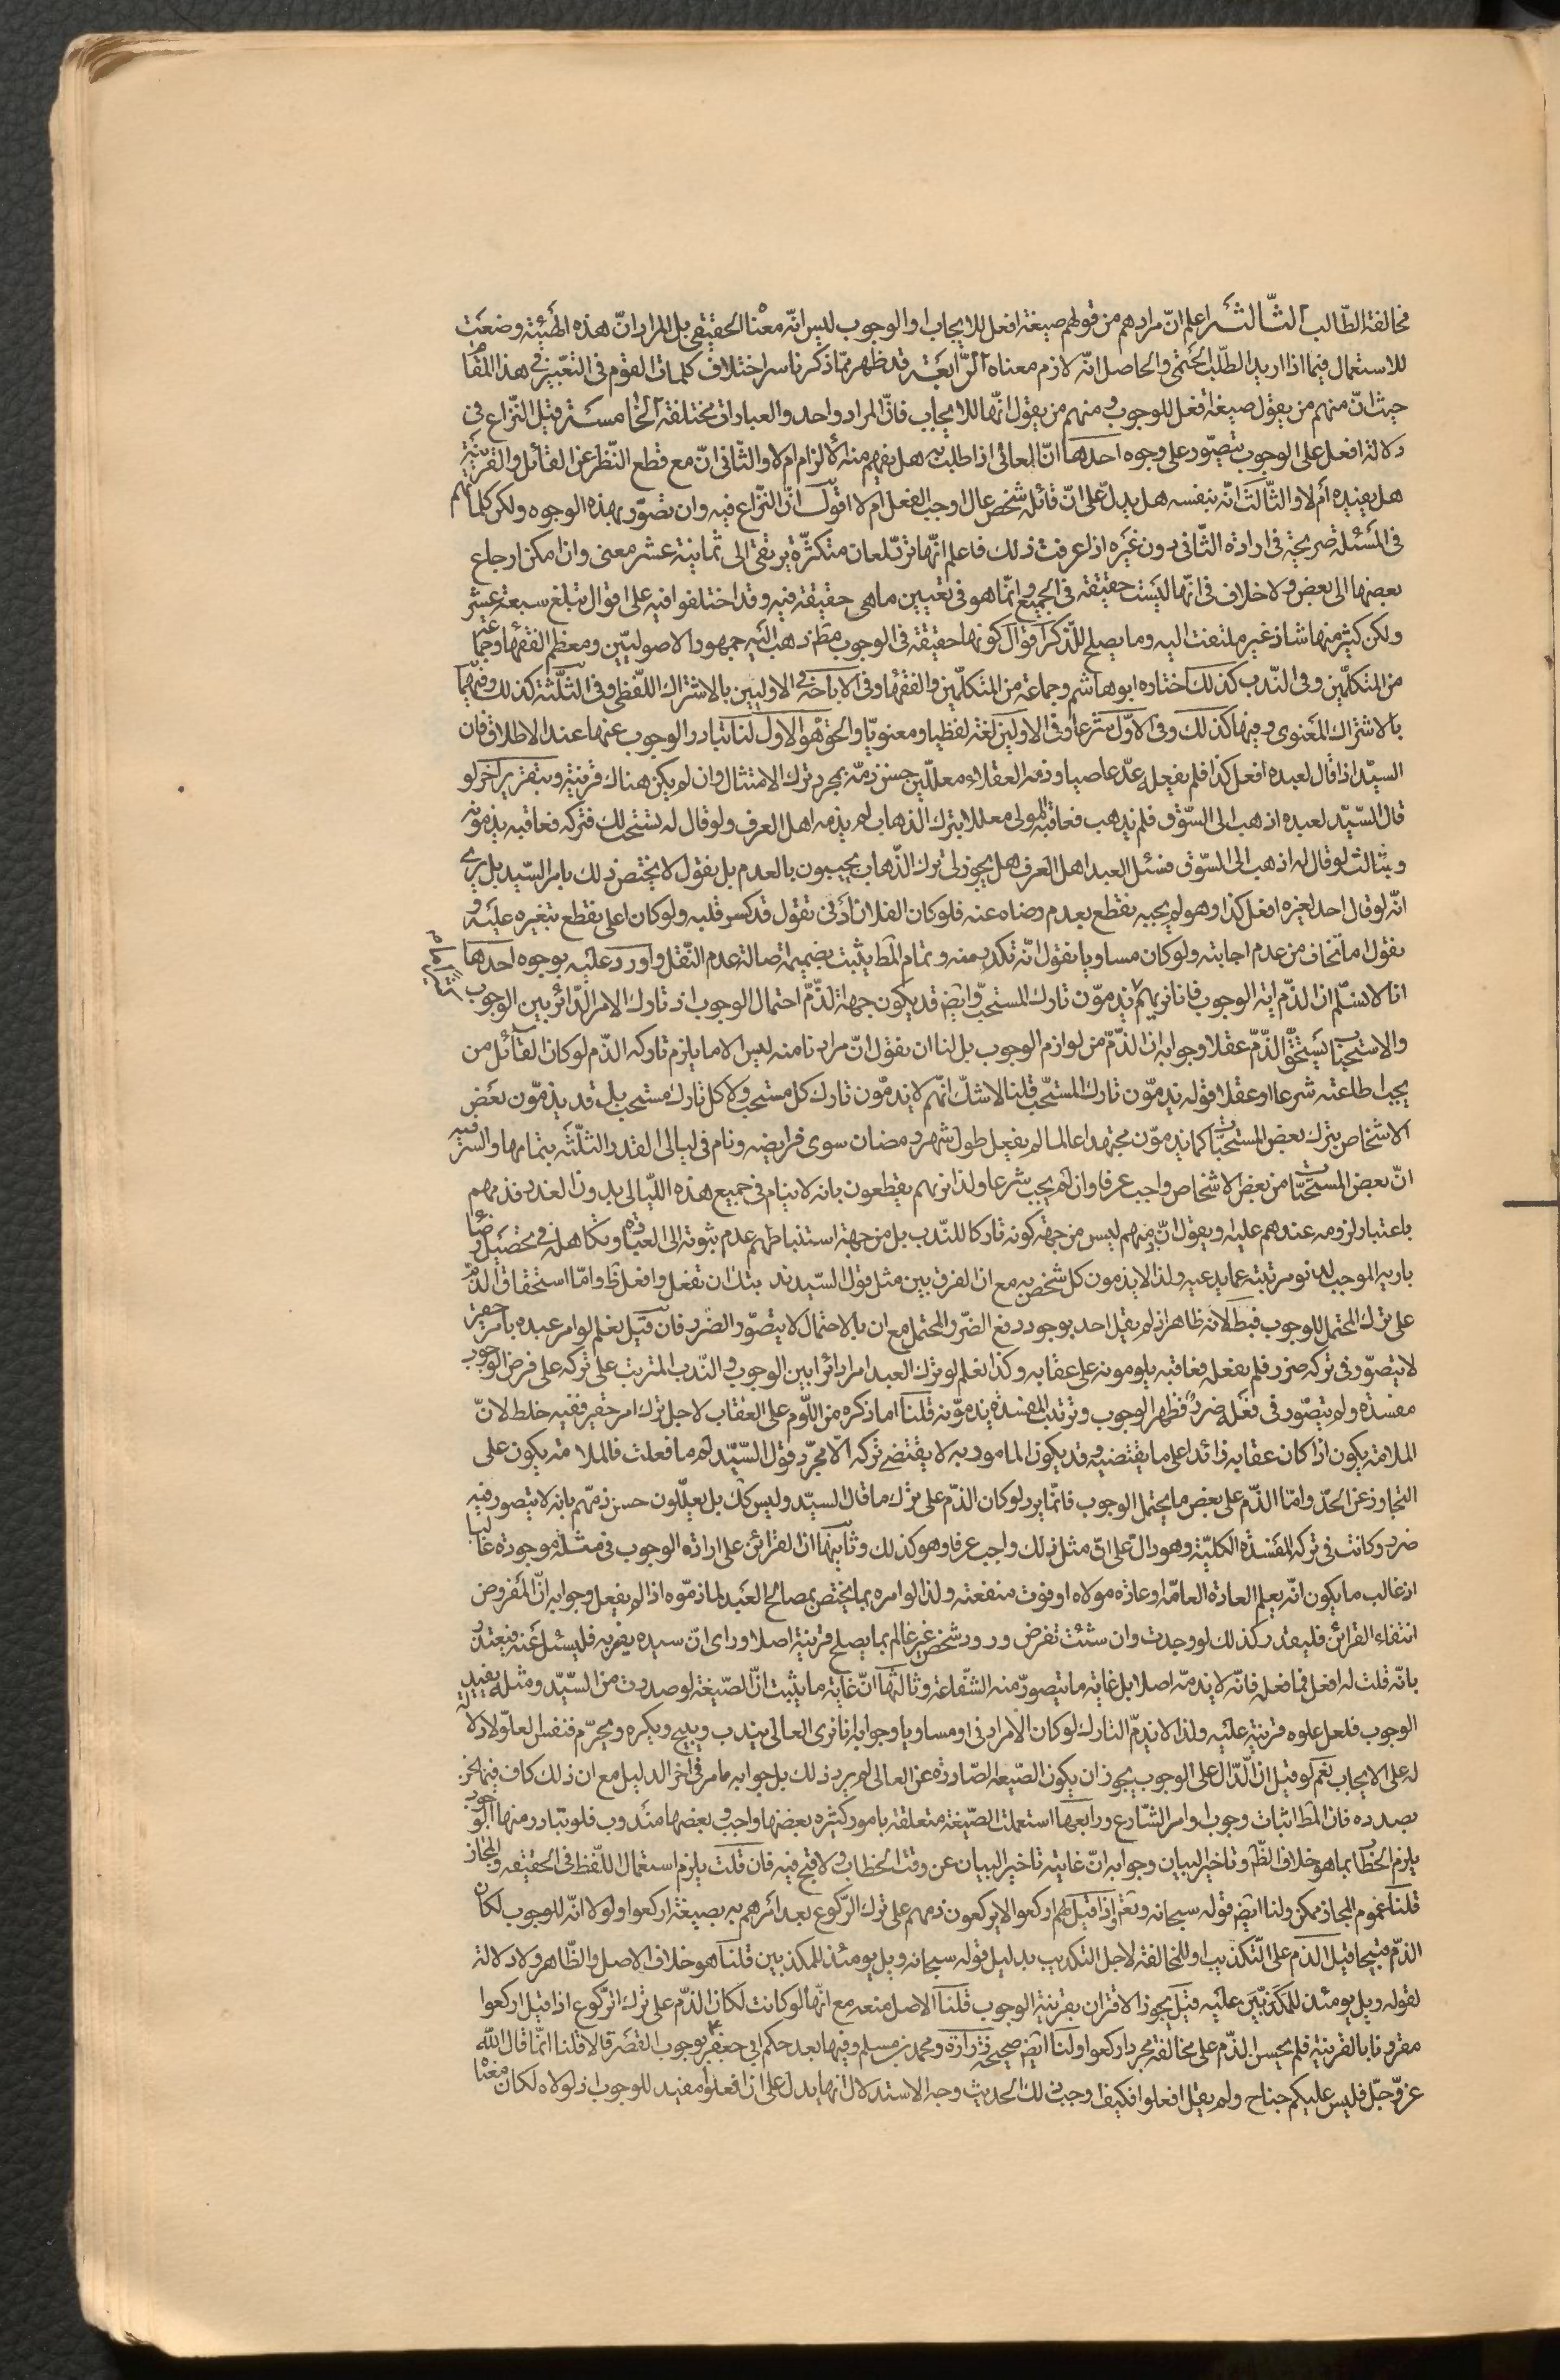 مخالفة الطّالب الثّالثة اعلم انّ مرادهم من قولهم صيغة افعل للايجاب او الوجوب ليس انّه معنا الحقيقى بل المراد انّ هذه الهيئة وضعت
للاستعمال فيما اذا اريد الطّلب الحتمى والحاصل انّه لازم معناه الرّابعة قد ظهر ممّا ذكرنا سر اختلاف كلمات القوم فى التعبير فى هذا المقام
حيث انّ منهم من يقول صيغة افعل للوجوب ومنهم من يقول انّها للايجاب فانّ المراد واحد والعبارات مختلفة الخامسة قيل النّزاع فى
دلالة افعل على الوجوب يتصوّر على وجوه احدها انّ العالى اذا طلب به هل يفهم منه الالزام ام لا والثّانى انّ مع قطع النّظر عن القائل والقرينة
هل يفيده أم لا والثّالث انّه بنفسه هل يدلّ على انّ قائله شخص عال اوجب الفعل ام لا اقول انّ النّزاع فيه وان تصوّر بهذه الوجوه ولكن كلماتهم
فى المسئلة صريحة فى ارادة الثّانى دون غيره اذا عرفت ذلك فاعلم انّها ترد لمعان متكثّرة يرتقى الى ثمانية عشر معنى وان امكن ارجاع
بعضها الى بعض ولا خلاف فى انّها ليست حقيقة فى الجميع وانّما هو فى تعيين ماهى حقيقة فيه وقد اختلفوا فيه على اقوال تبلغ سبعة عشر
ولكن كثير منها شاذ غير ملتفت اليه وما يصلح للذّكر اقوال كونها حقيقة فى الوجوب مط ذهب اليه جمهور الاصوليّين ومعظم الفقهاء وجماعة
من المتكلّمين وفى النّدب كذلك اختاره ابو هاشم وجماعة من المتكلّمين والفقهاء وفى الاباحة وفى الاوليين بالاشتراك اللّفظى وفى الثلّثة كذلك وفيهما
بالاشتراك المعنوى وفيها كذلك وفى الاوّل شرعا وفى الاولين لغة لفظيا ومعنويّا والحقّ هو الاول لنا تبادر الوجوب عنها عند الاطلاق فان
السيّد اذا قال لعبده افعل كذا فلم يفعله عدّ عاصيا وذمه العقلاء معللّين حسن ذمّه بمجرد ترك الامتثال وان لم يكن هناك قرينة وبتقرير آخر لو
قال السّيّد لعبده اذهب الى السّوق فلم يذهب فعاقبه المولى معللا بترك الذهاب لم يذمه اهل العرف ولو قال له يستحب لك فتركه فعاقبه يذمونه
وبثالث لو قال له اذهب الى السّوق فسئل العبد اهل العرف هل يجوز لى ترك الذّهاب يجيبون بالعدم بل نقول لا يختص ذلك بامر السّيد بل نرى
انّه لو قال احد لغيره افعل كذا وهو لم يجبه نقطع بعدم رضاه عنه فلو كان الفلان ادنى نقول قد كسر قلبه ولو كان اعلى نقطع بتغيره عليه و
نقول اما تخاف من عدم اجابته ولو كان مساويا نقول انّه تكدر منه وتمام المط يثبت بضميمة اصالة عدم النّقل واورد عليه بوجوه احدها
انا لا نسّلم انّ الذّم اية الوجوب فانا نريهم يذمّون تارك المستحبّ وايضا قد يكون جهة الذّمّ احتمال الوجوب اذ تارك الامر الدّائر بين الوجوب
والاستحباب يستحقّ الذّمّ عقلا وجوابه انّ الذّمّ من لوازم الوجوب بل لنا ان نقول انّ مرادنا منه ليس الا ما يلزم تاركه الذّم لو كان القائل من
يجب اطاعته شرعا او عقلا قوله يذمّون تارك المستحّب قلنا لا شكّ انّهم لا يذمّون تارك كل مستحب ولا كل تارك مستحب بل قد يذمّون بعض
الاشخاص بترك بعض المستحبّات كما يذمّون مجتهدا عالما لم يفعل طول شهر رمضان سوى فرايضه ونام فى ليالى القدر الثلّثة بتمامها والسّر فيه
انّ بعض المستحبّات من بعض الاشخاص واجب عرفا وان لم يجب شرعا ولذا نريهم يقطعون بانه لا ينام فى جميع هذه اللّيالى بدون العذر فذمهم
باعتبار لزومه عندهم عليه ونقول انّ ذمهم ليس من جهة كونه تاركا للنّدب بل من جهة استنباطهم عدم مثوبة الى العبادة وتكاهله فى تحصيل رضاء
باريه الموجب لدنو مرتبته عما يدعيه ولذا لا يذمون كل شخص به مع ان الفرق بين مثل قول السّيد ندبتك ان تفعل وافعل ظ وامّا استحقاق الذّم
على ترك المحتمل للوجوب فبطلانه ظاهر اذ لم يقل احد بوجود دفع الضّرر المحتمل مع ان بالاحتمال لا يتصوّر الضّرر فان قيل نعلم لو امر عبده بامر حقير
لا يتصوّر فى تركه ضرر فلم يفعله فعاقبه يلومونه على عقابه وكذا نعلم لو ترك العبد امرا دائرا بين الوجوب والنّدب المترتب على تركه على فرض الوجوب
مفسدة ولم يتصّور فى فعله ضرر فظهر الوجوب وترتب المفسدة يذمّونه قلنا اما ذكره من اللّوم على العقاب لاجل ترك امر حقير ففيه خلط لانّ
الملامة يكون اذا كان عقابه زائدا على ما يقتضيه وقد يكون المامور به لا يقتضى تركه الّا مجرّد قول السّيّد لم ما فعلت فالملامة يكون على
التجاوز عن الحدّ وامّا الذّم على بعض ما يحتمل الوجوب فانّما يرد لو كان الذّم على ترك ما قال السيّد وليس كك بل يعلّلون حسن ذمّهم بانه لا يتصور فيه
ضرر وكانت فى تركه المفسدة الكليّة وهو دال على انّ مثل ذلك واجب عرفا وهو كذلك وثانيها ان القرائن على ارادة الوجوب فى مثله موجودة غالبا
اذ غالب ما يكون انّه يعلم العادة العامّة او عادة مولاه او فوت منفعته ولذا لو امره بما يختص بمصالح العبد لما ذمّوه اذا لم يفعل وجوابه انّ المفروض
انتفاء القرائن فليقدر كذلك لو وجدت وان شئت تفرض ورود شخص غير عالم بما يصلح قرينة اصلا وراى انّ سيده يضربه فليسئل عنه فيعتذر
بانّه قلت له افعل فما فعل فانّه لا يذمّه اصلا بل غاية ما يتصوّر منه الشّفاعة وثالثها انّ غاية ما يثبت انّ الصّيغة لو صدرت من السّيّد ومثله يفيد
الوجوب فلعل علوه قرينة عليه ولذا لا يذمّ التارك لو كان الامر ادنى او مساويا وجوابه انا نرى العالى يندب ويبيح ويكره ويحرّم فنفس العلوّ لا دلالة
له على الايجاب نعم لو قيل انّ الدّال على الوجوب يجوز ان يكون الصّيغة الصّادرة عن العالى لم يرد ذلك بل جوابه ما مر فى آخر الدليل مع ان ذلك كاف فيما نحن
بصدده فان المط اثبات وجوب اوامر الشّارع ورابعها استعملت الصّيغة متعلقة بامور كثيره بعضها واجب وبعضها مندوب فلو تبادر منها الوجوب
يلزم الخطاب بما هو خلاف الظّم وتاخير البيان وجوابه انّ غايته تاخير البيان عن وقت الخطاب ولا قبح فيه فان قلت يلزم استعمال اللّفظ فى الحقيقة والمجاز
قلنا عموم المجاز ممكن ولنا ايضا قوله سبحانه وتعم واذا قيل لهم اركعوا لا يركعون ذمهم على ترك الرّكوع بعد امرهم به بصيغة اركعوا ولولا انّه للوجوب لكان
الذّمّ قبيحا قيل الذم على التّكذيب او للمخالفة لاجل التكذيب بدليل قوله سبحانه ويل يومئذ للمكذبين قلنا هو خلاف الاصل والظّاهر ولا دلالة
لقوله ويل يومئذ للمكذبين عليه قيل يجوز الاقتران بقرينة الوجوب قلنا الاصل منعه مع انّها لو كانت لكان الذّم على ترك الرّكوع اذا قيل اركعوا
مقرونا بالقرينة فلم يحسن الذّم على مخالفة مجرد اركعوا ولنا ايضا صحيحة زرارة ومحمد بن مسلم وفيها بعد حكم ابى جعفر بوجوب القصر قالا قلنا انّما قال اللّه
عزّ وجلّ فليس عليكم جناح ولم يقل افعلوا فكيف اوجب ذلك الحديث وجه الاستدلال انها يدل على ان افعلوا مفيد للوجوب اذ لولاه لكان معنا